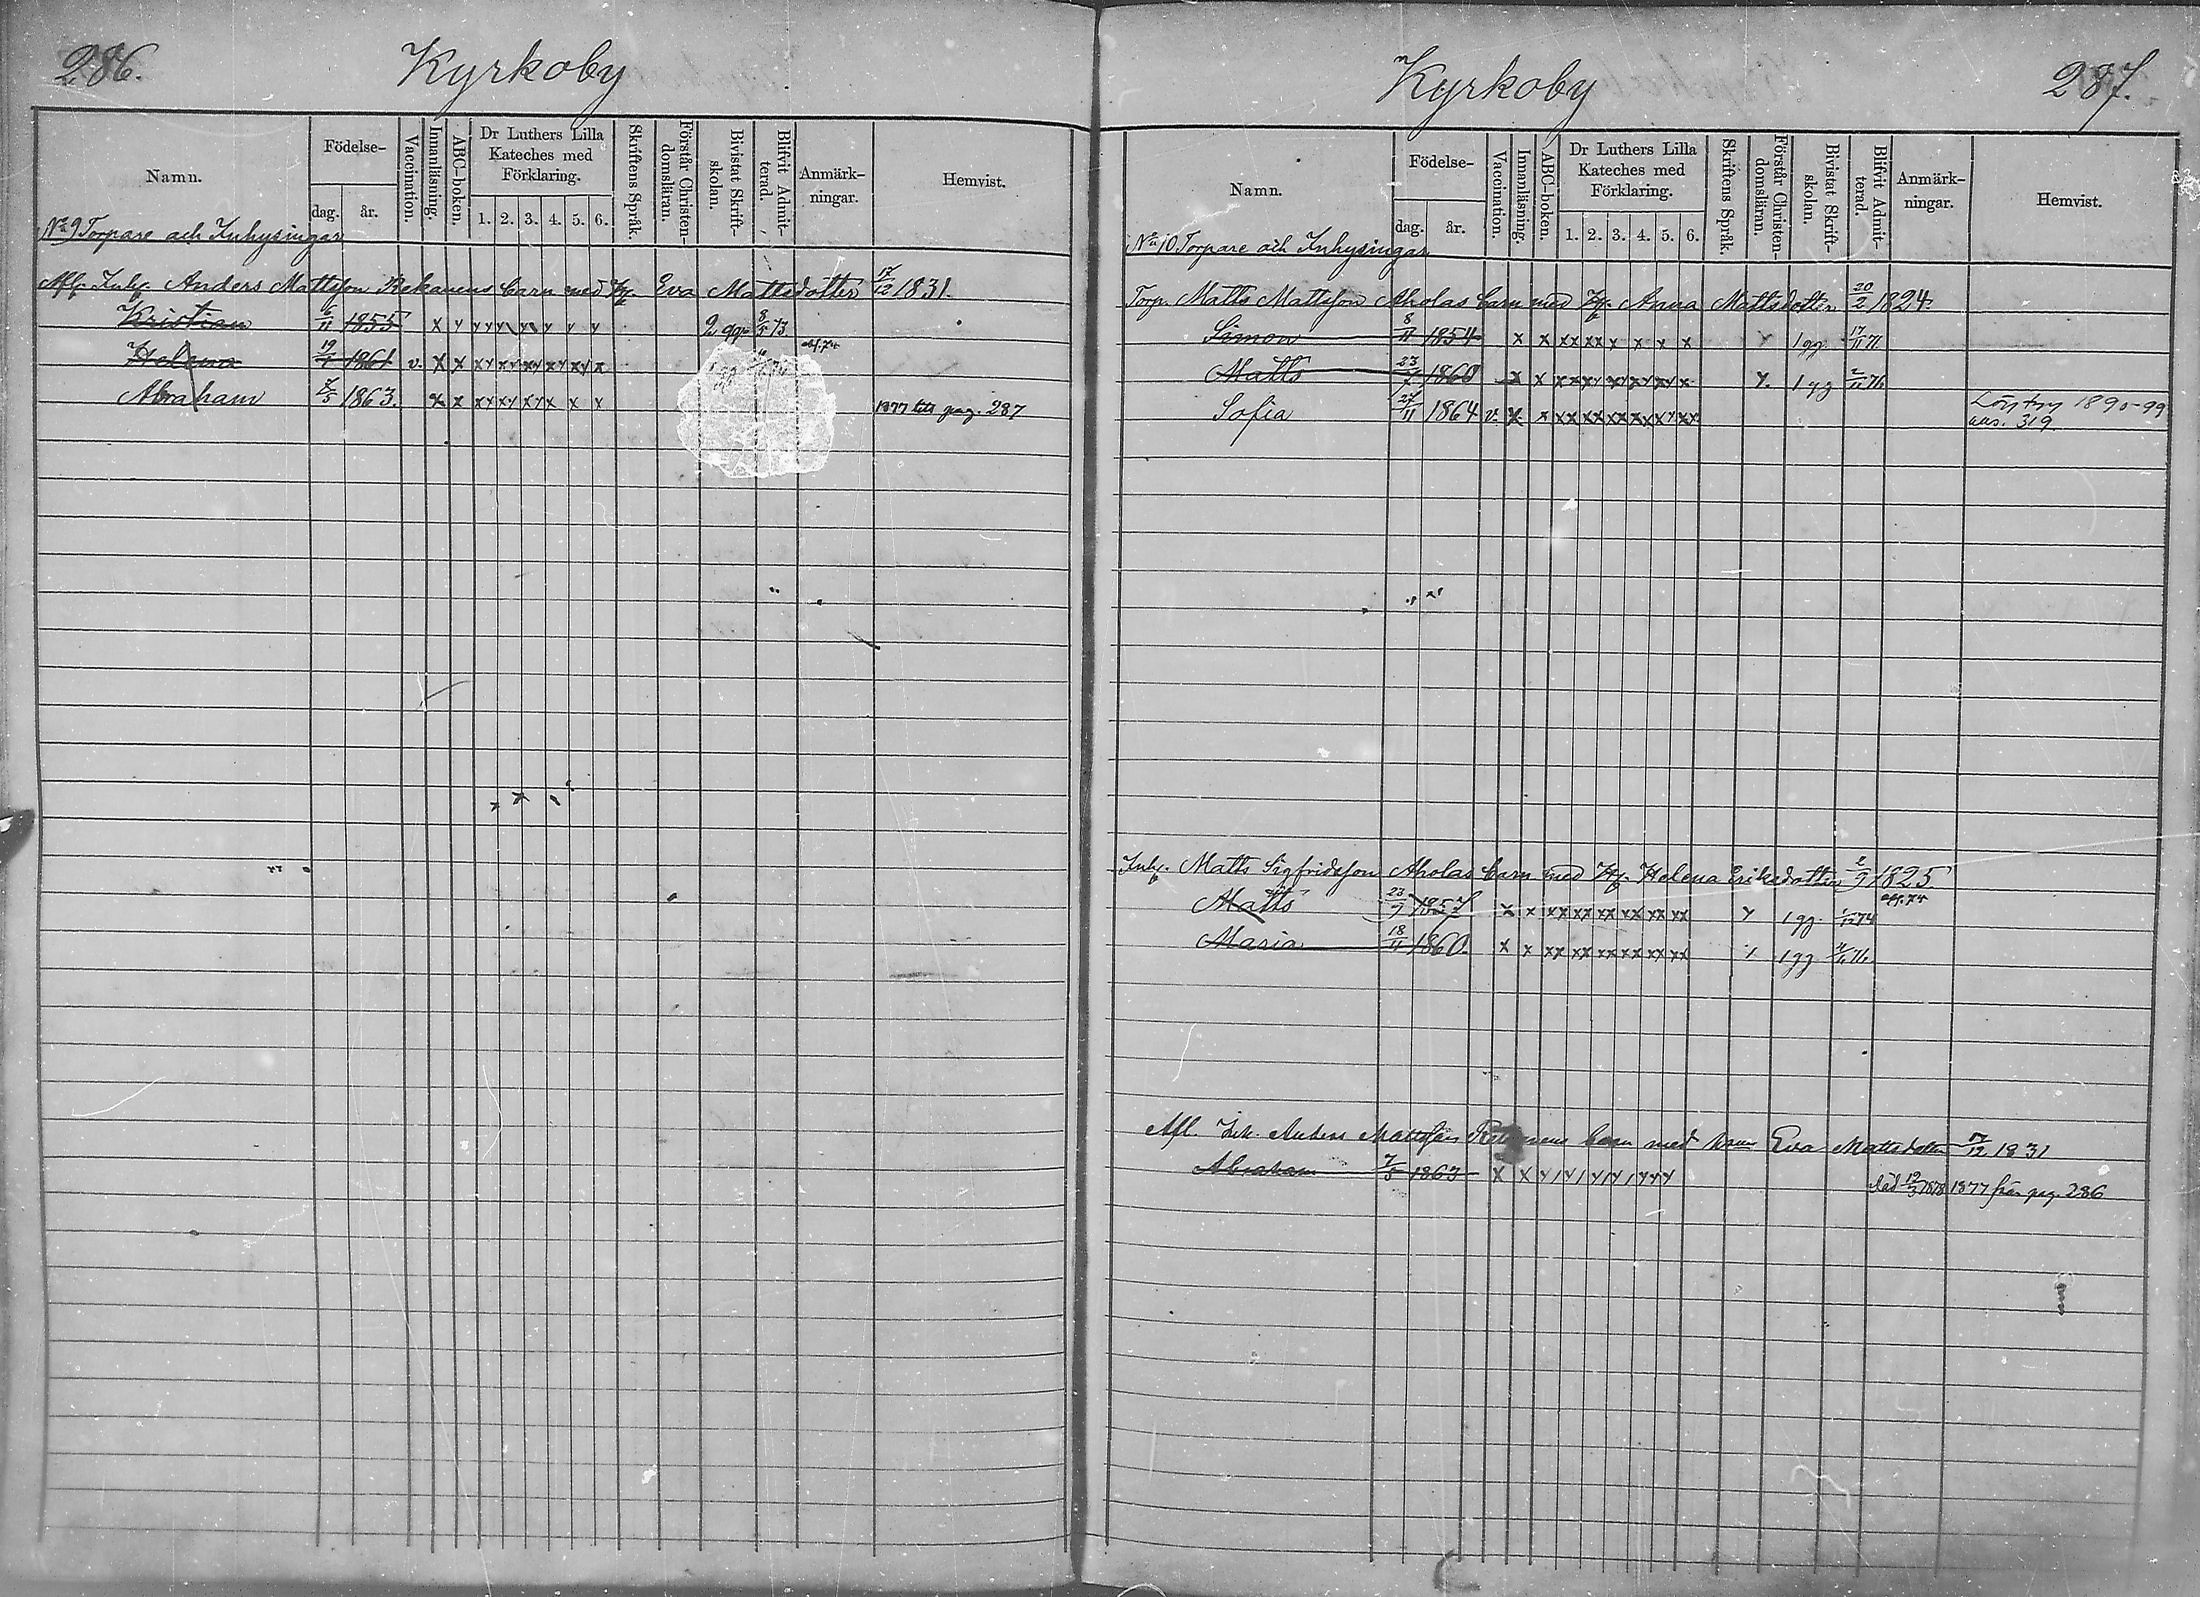 286.
Kyrkoby
Namn.
Födelse-
dag. år.
Vaccination.
Innanläsning.
ABC-boken.
Dr Luthers Lilla Kateches med Förklaring.
1. 2. 3. 4. 5. 6.
Skriftens Språk.
Förstår Christendomsläran.
Bivistat Skriftskolan.
Blifvit Admitterad.
Anmärkningar.
Hemvist.
No 9 Torpare och Inhysingar
Afl. Inh. Anders Mattsson Rekanens barn med H. Eva Mattsdotter 17/12 1831.
Kristian 6/11 1855 x y y y y y y y y 2 gg 8/5 73
Helena 19/1 1861 v. x x x y x y x y x y x y x
Abraham 7/5 1863. x x x y x y x y x x x 1877 till pag. 287
287.
Kyrkoby
Namn.
Födelse-
dag. år.
Vaccination.
Innanläsning.
ABC-boken.
Dr Luthers Lilla Kateches med Förklaring.
1. 2. 3. 4. 5. 6.
Skriftens Språk.
Förstår Christendomsläran.
Bivistat Skriftskolan.
Blifvit Admitterad.
Anmärkningar.
Hemvist.
No 10. Torpare och Inhysingar
Torp. Matts Mattsson Aholas barn med H. Anna Mattsdotter 20/2 1824.
Simon 8/11 1854 x x xx xx x x x x y 1 gg 17/11 71
Matts 23/7 1860 x x x x x y x y x y x y x y. 1 gg 2/11 76
Sofia 27/11 1864 v. x. x xx xx xx xx xy xx 1890-99
319
Inh. Matts Sigfridsson Aholas barn med H. Helena Eriksdotter 2/9 1825
Matts 23/9 1857 x x xx xx xx xx xx xx y 1 gg 1/12 74
Maria 18/11 1860. x x xx xx xx xx xx xx 1 gg 76
Afl. Inh. Anders Mattsson Rekanens barn med Eva Mattsdotter 17/12 1831
Abraham 7/5 1863 x x y / y / y / y / y y y död 19/3 1878 1877 från pag. 286